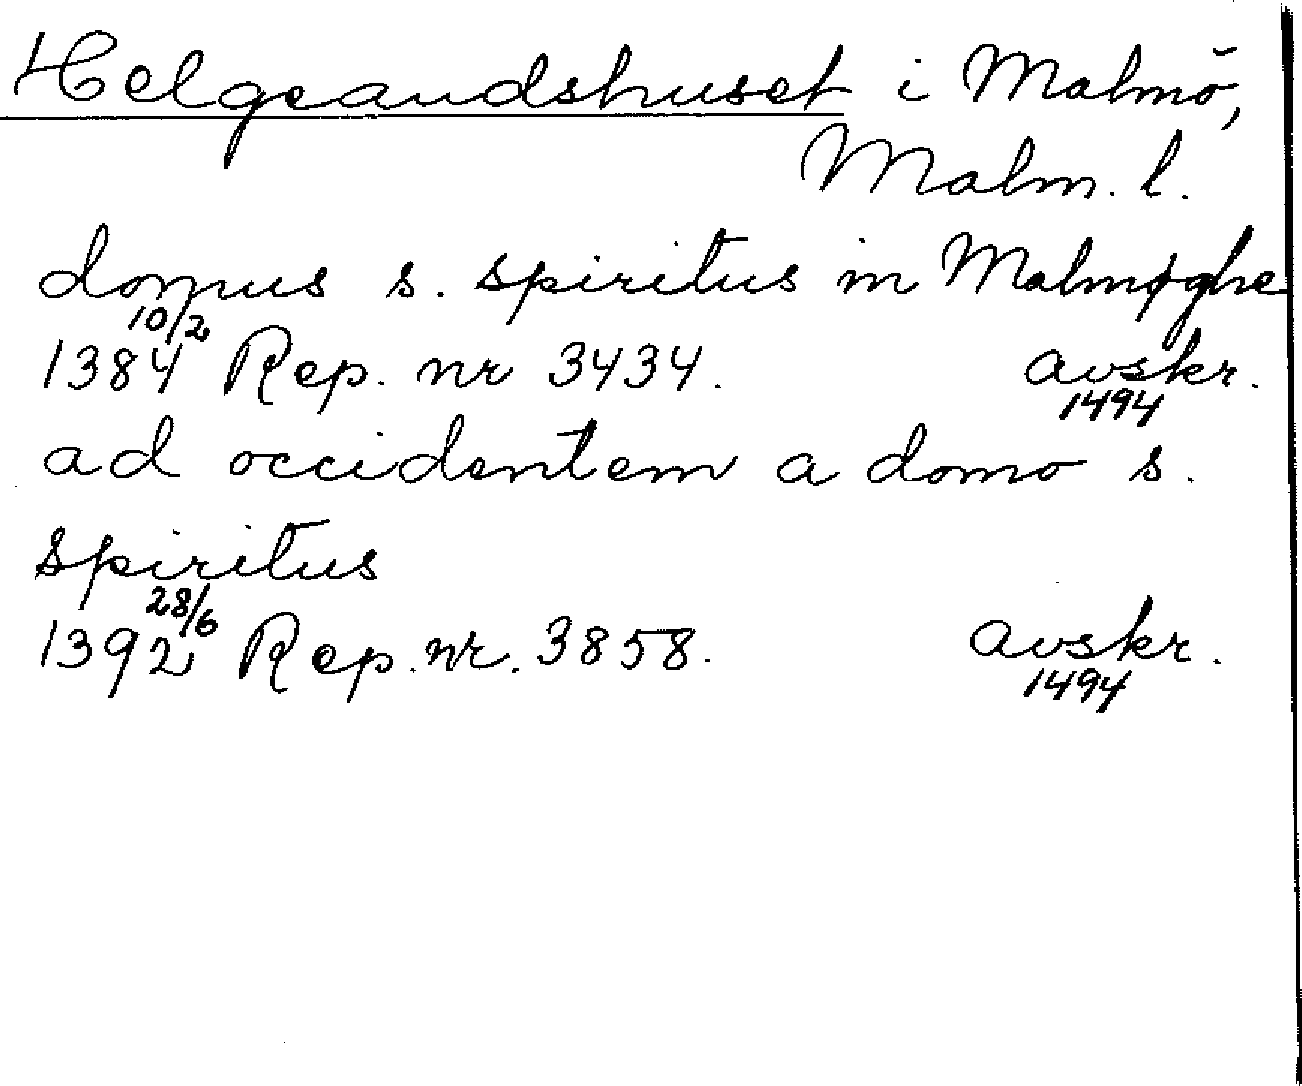 Helgeandshuset i Malmö,
Malm. l.
domus s. spiritus in Malmøghe
1384 10/2 Rep. nr 3434. avskr.
1494
ad occidentem a domo s.
spiritus
1392 28/6 Rep. nr. 3858. avskr.
1494